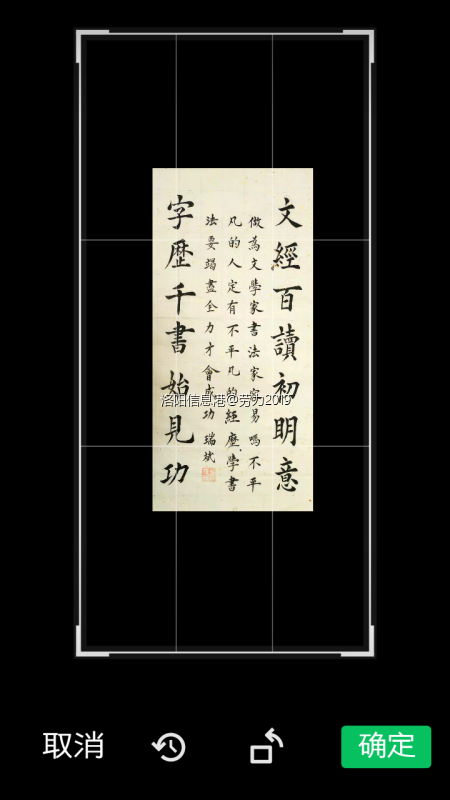 文經百讀初明意
做為文學家書法家容易嗎不平
凡的人定有不平凡的經歷學書
法要竭盡全力才會成功 瑞斌
字歷千書始見功
洛阳信息港@劳力2019
取消
确定